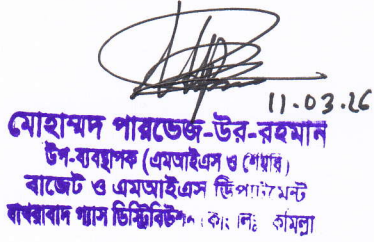 11.03.26
মোহাম্মদ পারভেজ-উর-রহমান
উপ-ব্যবস্থাপক (এমআইএস ও শেয়ার)
বাজেট ও এমআইএস ডিপার্টমেন্ট
বাখরাবাদ গ্যাস ডিস্ট্রিবিউশন কোঃ লিঃ কুমিল্লা